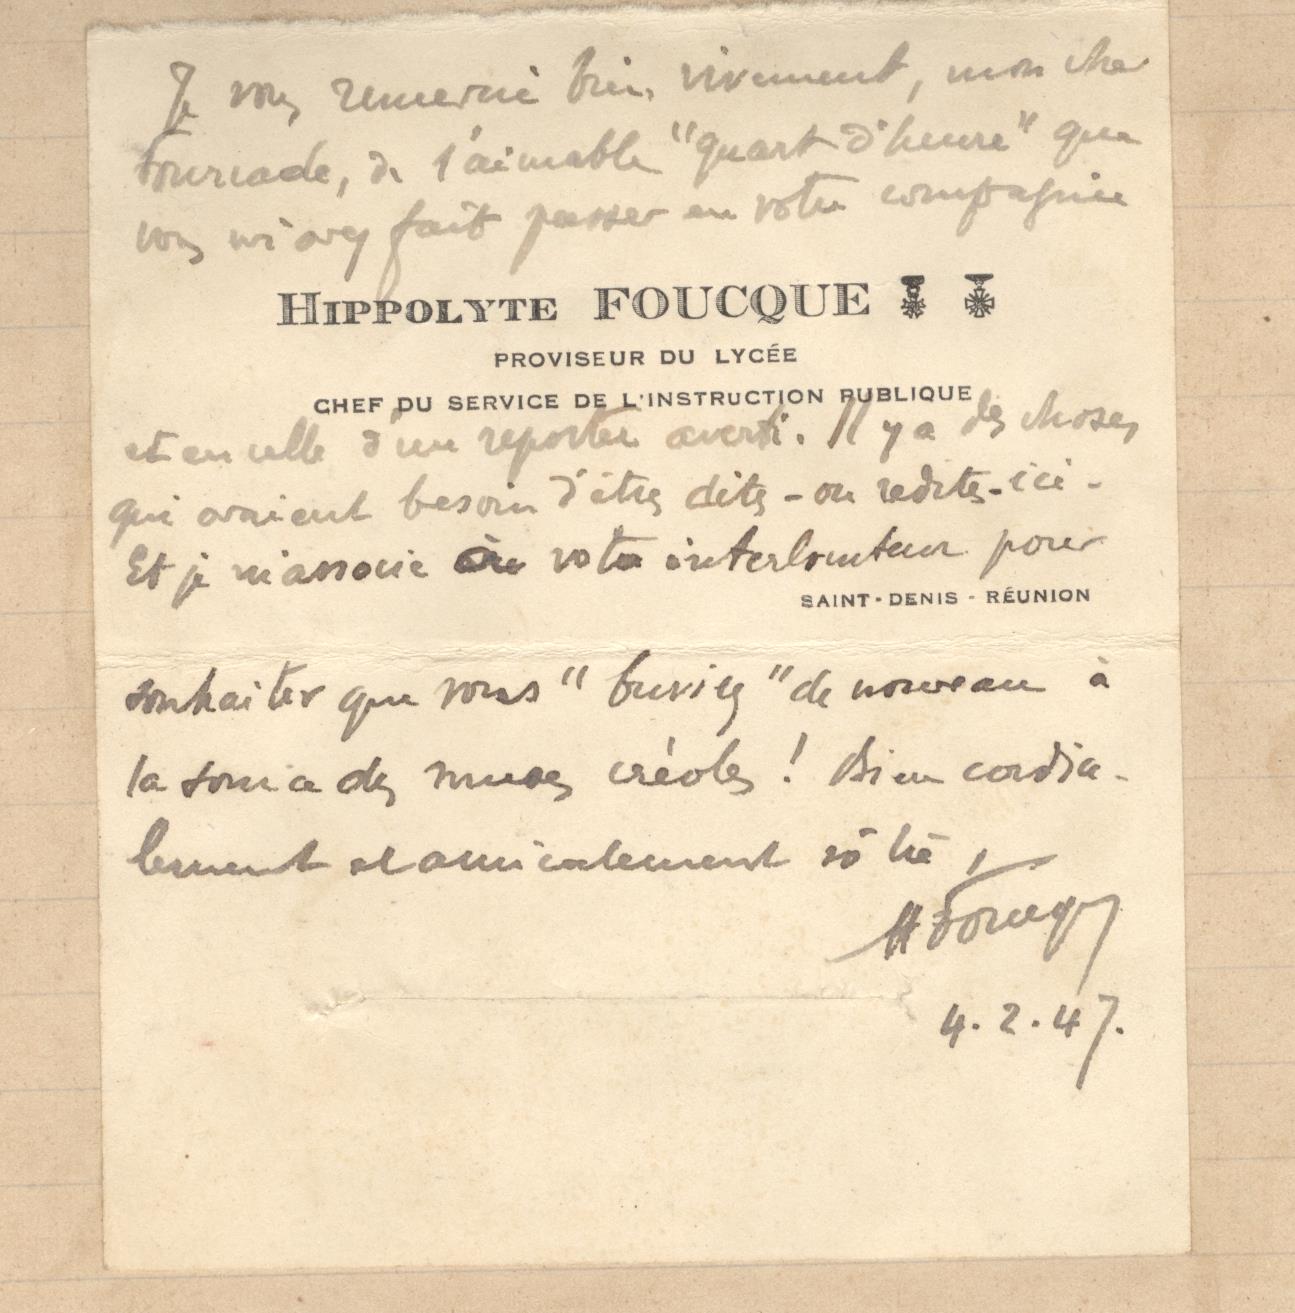 Je vous remercie bien vivement, mon cher
Fourcade, de l'aimable "quart d'heure" que
vous m'avez fait passer en votre compagnie
HIPPOLYTE FOUCQUE
PROVISEUR DU LYCÉE
CHEF DU SERVICE DE L'INSTRUCTION PUBLIQUE
et en celle d'un reporter averti. Il y a des choses
qui avaient besoin d'être dites - ou redites - ici -
Et je m'associe à votre interlocuteur pour
SAINT-DENIS - RÉUNION
souhaiter que vous "buviez" de nouveau à
la source des muses créoles ! Bien cordia-
lement et amicalement vôtre,
H Foucque
4.2.47.